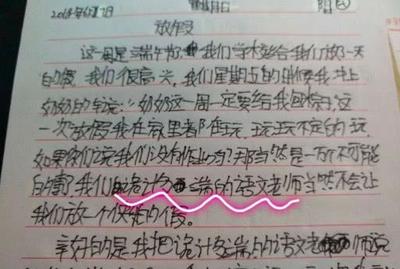 2018年6月17日 星期日 阴
放假
这一周是端午节，我们学校给我们放一天
的假，我们很高兴，我们星期五的时候我马上
奶奶的车说：“奶奶这一周一定要给我包粽子，这
一次放假我在家里都在玩，玩玩不定的玩，
如果你们说我们没有作业吗？那当然是一万个不可能
的事了我们诡计多端的语文老师当然不会让
我们放一个快乐的假。
幸好的是我把诡计多端的语文老师说